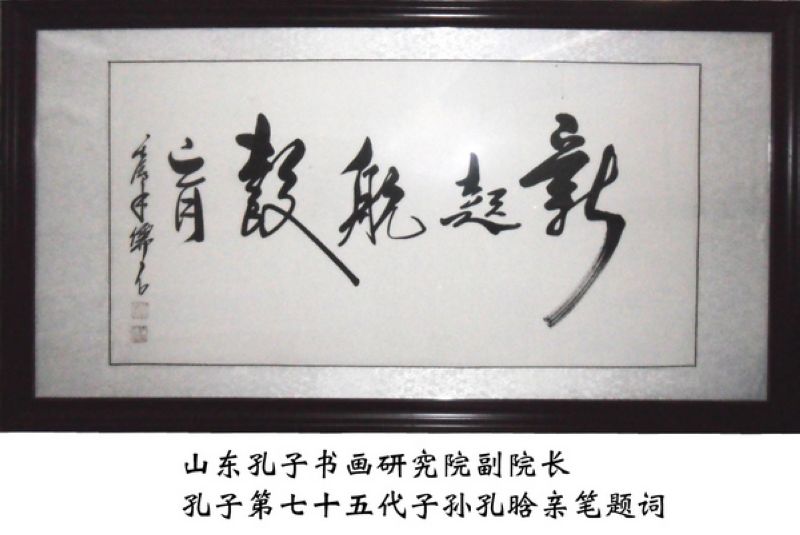 新起航教育
壬辰年
山东孔子书画研究院副院长
孔子第七十五代子孙孔晗亲笔题词